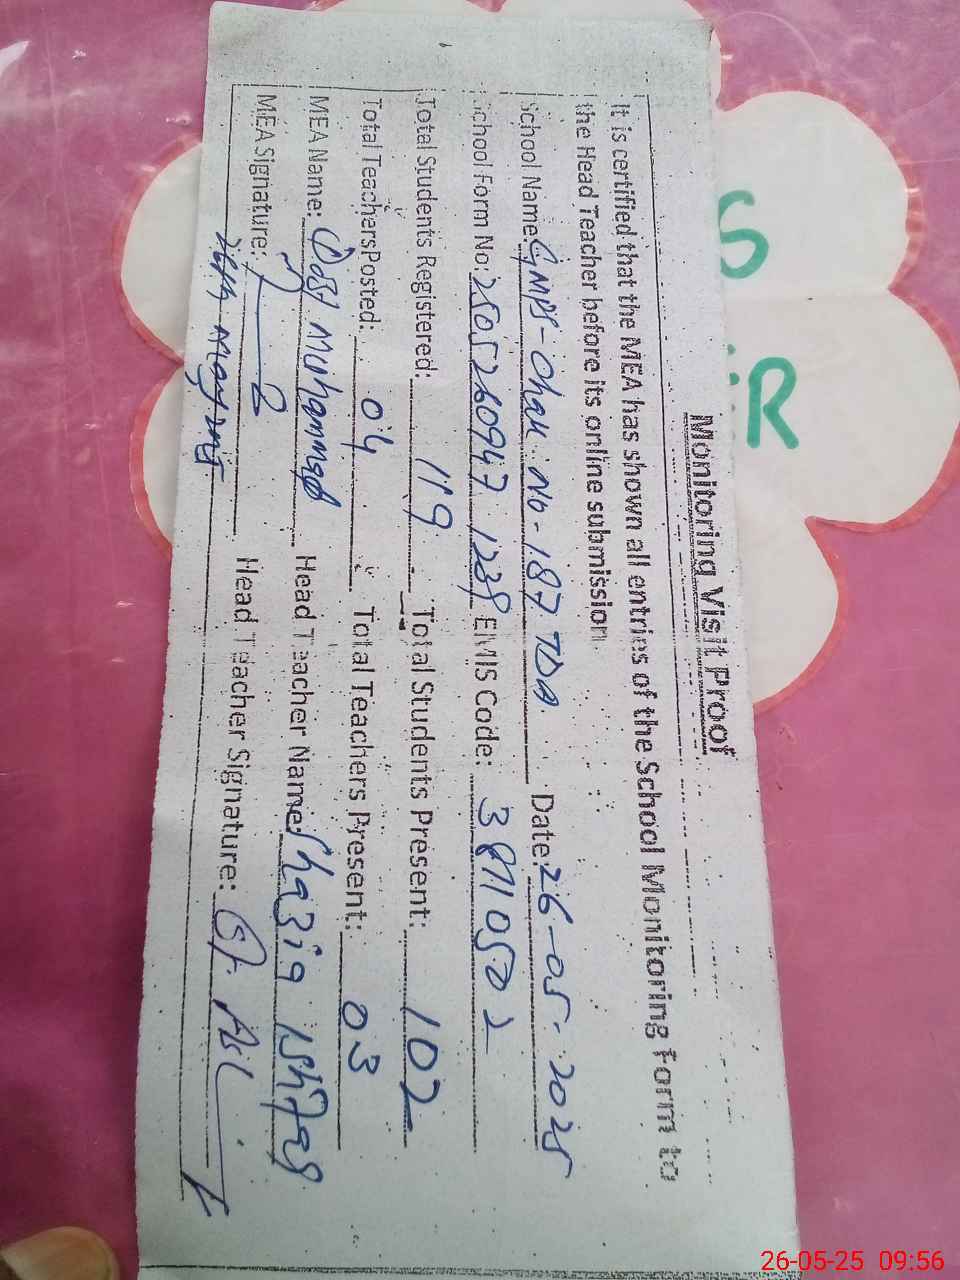 Monitoring Visit Proof
It is certified that the MEA has shown all entries of the School Monitoring Form to
the Head Teacher before its online submission
School Name: GMPS-Chak No-187 TDA Date: 26-05-2025
School Form No: 2505260947 1238 EMIS Code:
Total Students Registered: 119 Total Students Present: 102
Total Teachers Posted: 04 Total Teachers Present: 03
MEA Name: Dost Muhammad Head Teacher Name: Shazia
MEA Signature: Head Teacher Signature:
S
R
26-05-25 09:56